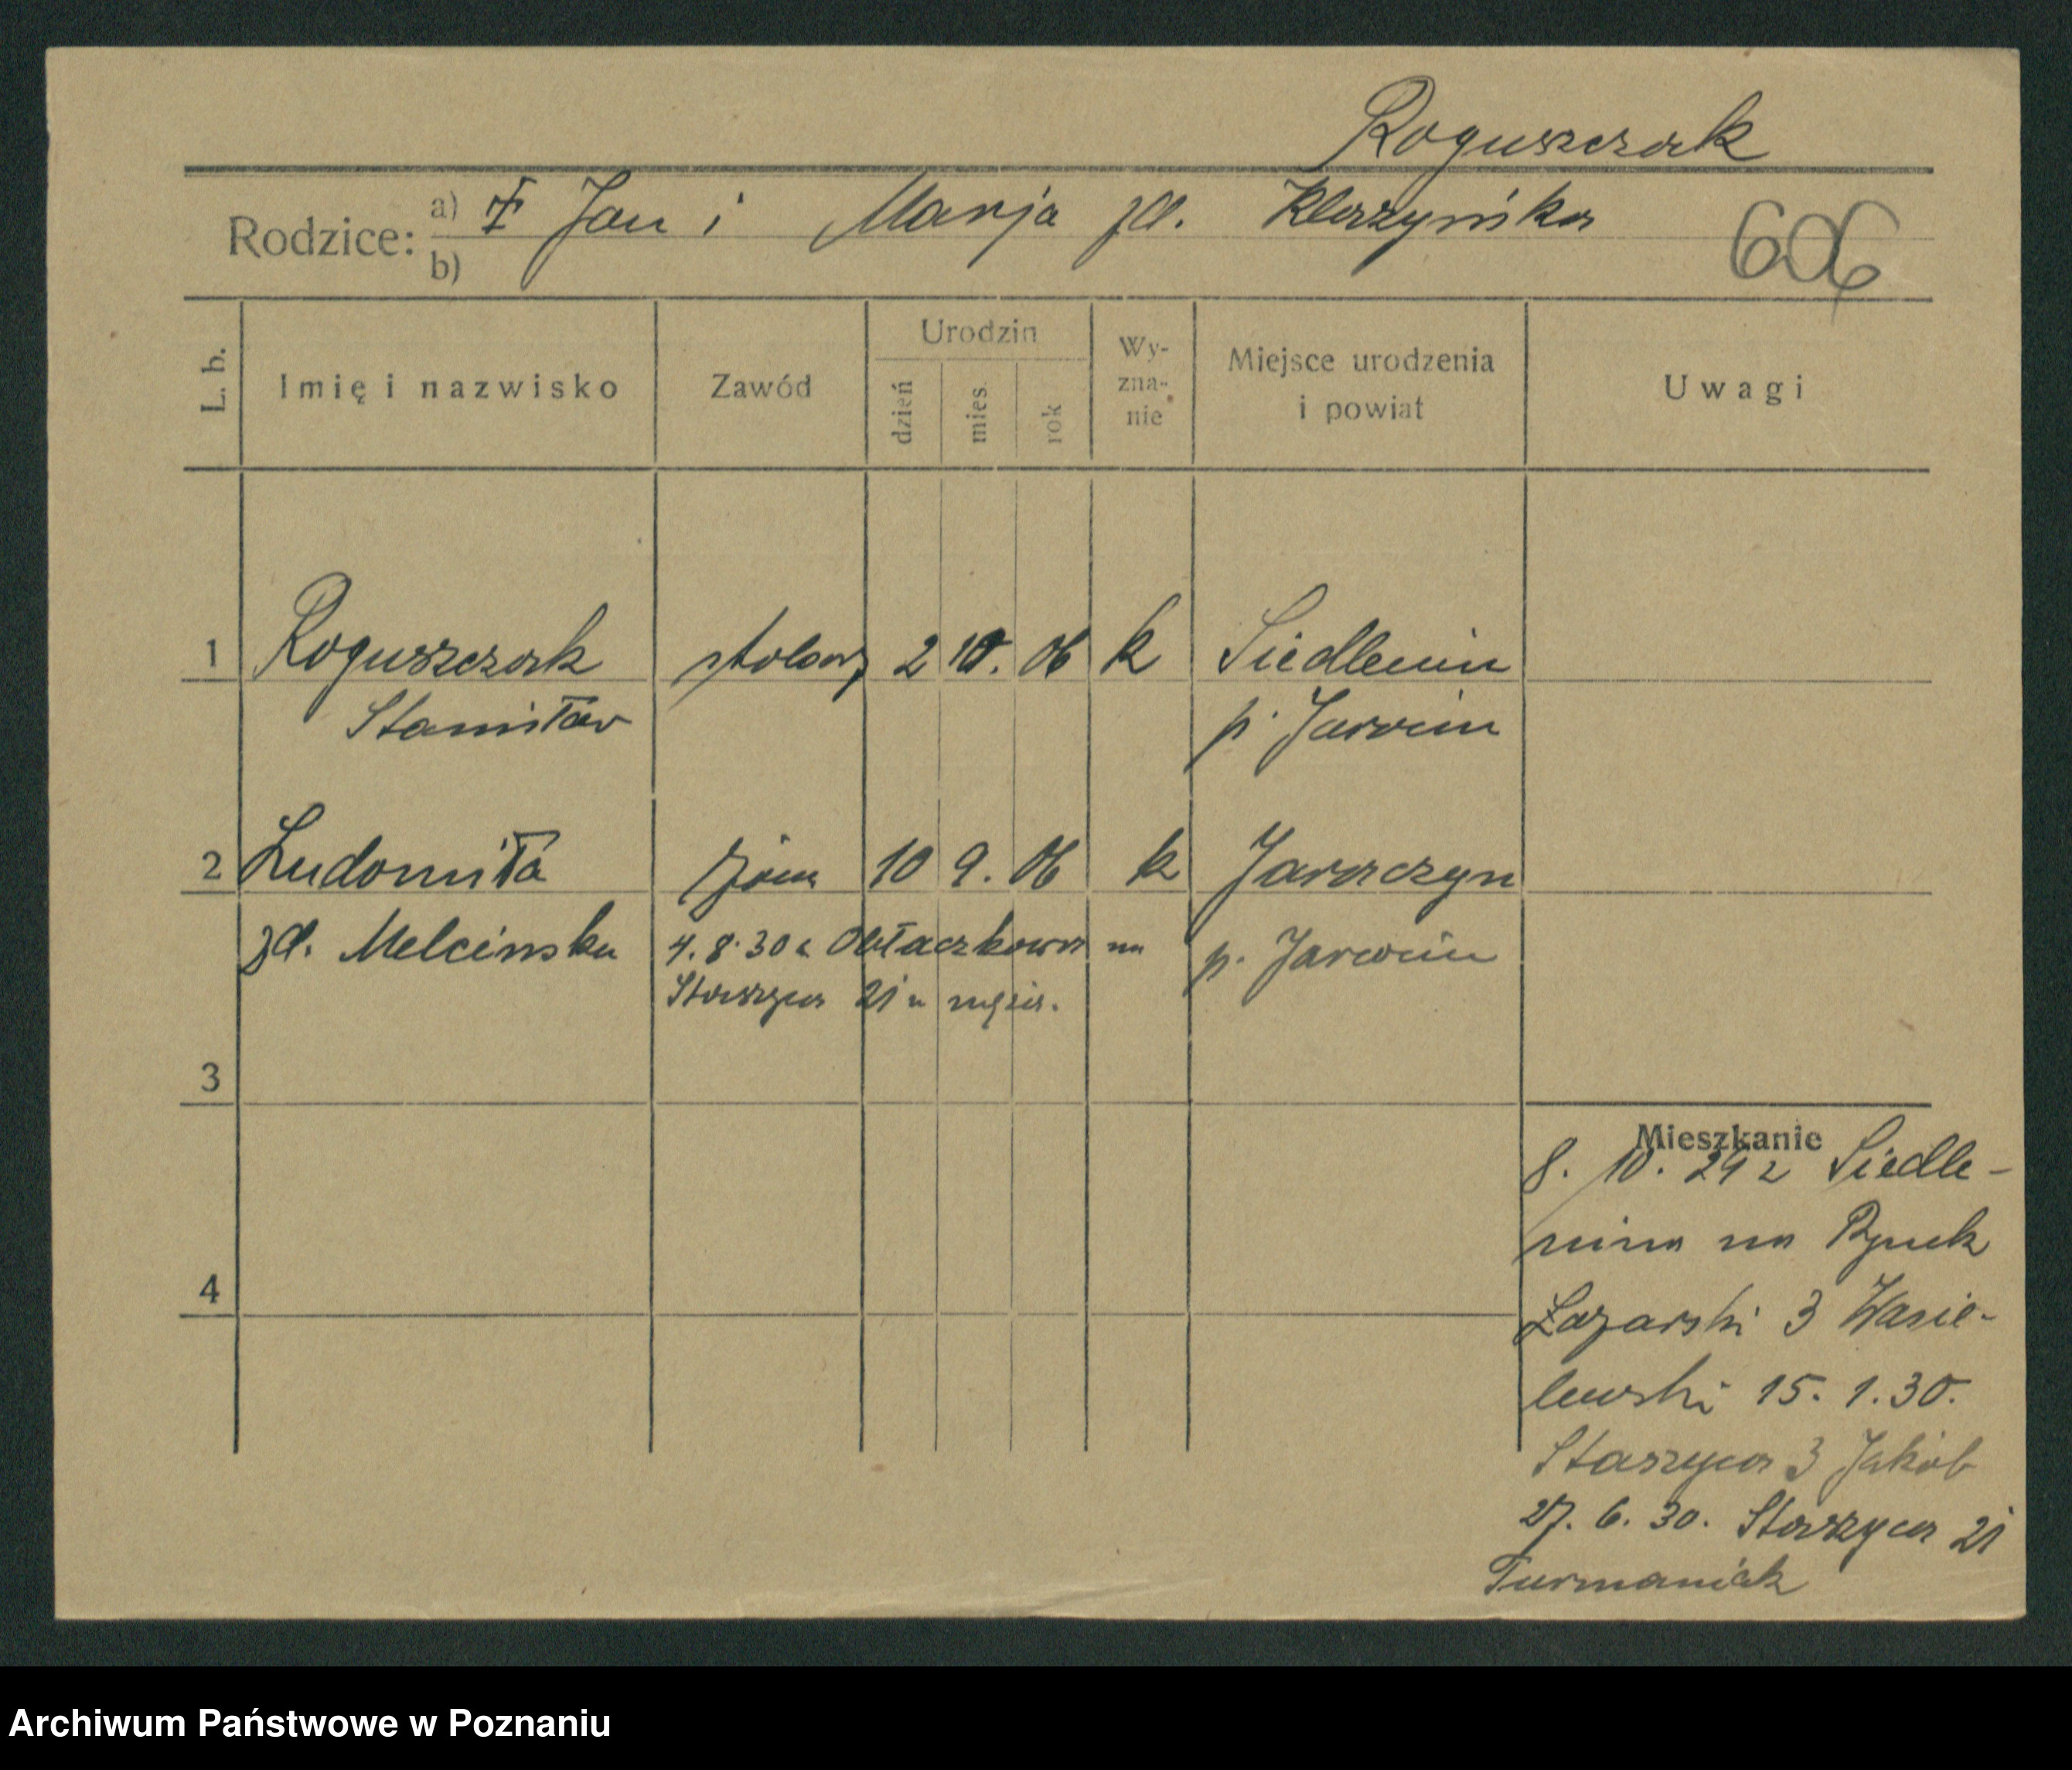 Roguszczak
Rodzice: a) Ŧ Jan i Marja zd. Klarzyńska
b)
606
L. b. Imię i nazwisko Zawód Urodzin dzień mies. rok Wy-zna-nie Miejsce urodzenia i powiat Uwagi
1 Roguszczak stolarz 2 10. 06 k Siedlemin
Stanisław p. Jarocin
2 Ludomiła żona 10 9. 06 k Jaraczyn
zd. Melcinska 4. 8. 30 z Obłaczkowa na p. Jarocin
Staszyca 21 u męża.
3
Mieszkanie
8. 10. 29 z Siedle-
mina na Rynek
4
Łazarski 3 Wasie-
lewski 15. 1. 30.
Staszyca 3 Jakób
27. 6. 30. Staszyca 21
Furmaniak
Archiwum Państwowe w Poznaniu